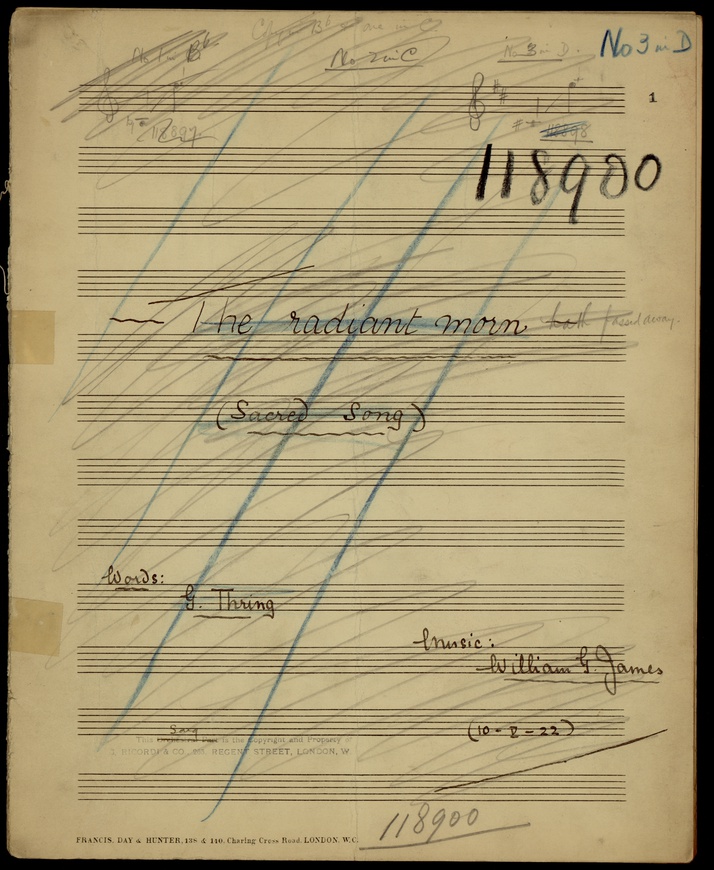 No 3 in D
No 2 in C
No 3 in D.
1
118897
118898
118900
The radiant morn hath passed away.
(Sacred Song)
Words:
G. Thring
Music:
William G. James
(10-V-22)
Song
This Part is the Copyright and Property
RICORDI & CO., 265, REGENT STREET, LONDON, W.
118900
FRANCIS, DAY & HUNTER, 138 & 140, Charing Cross Road, LONDON, W.C.